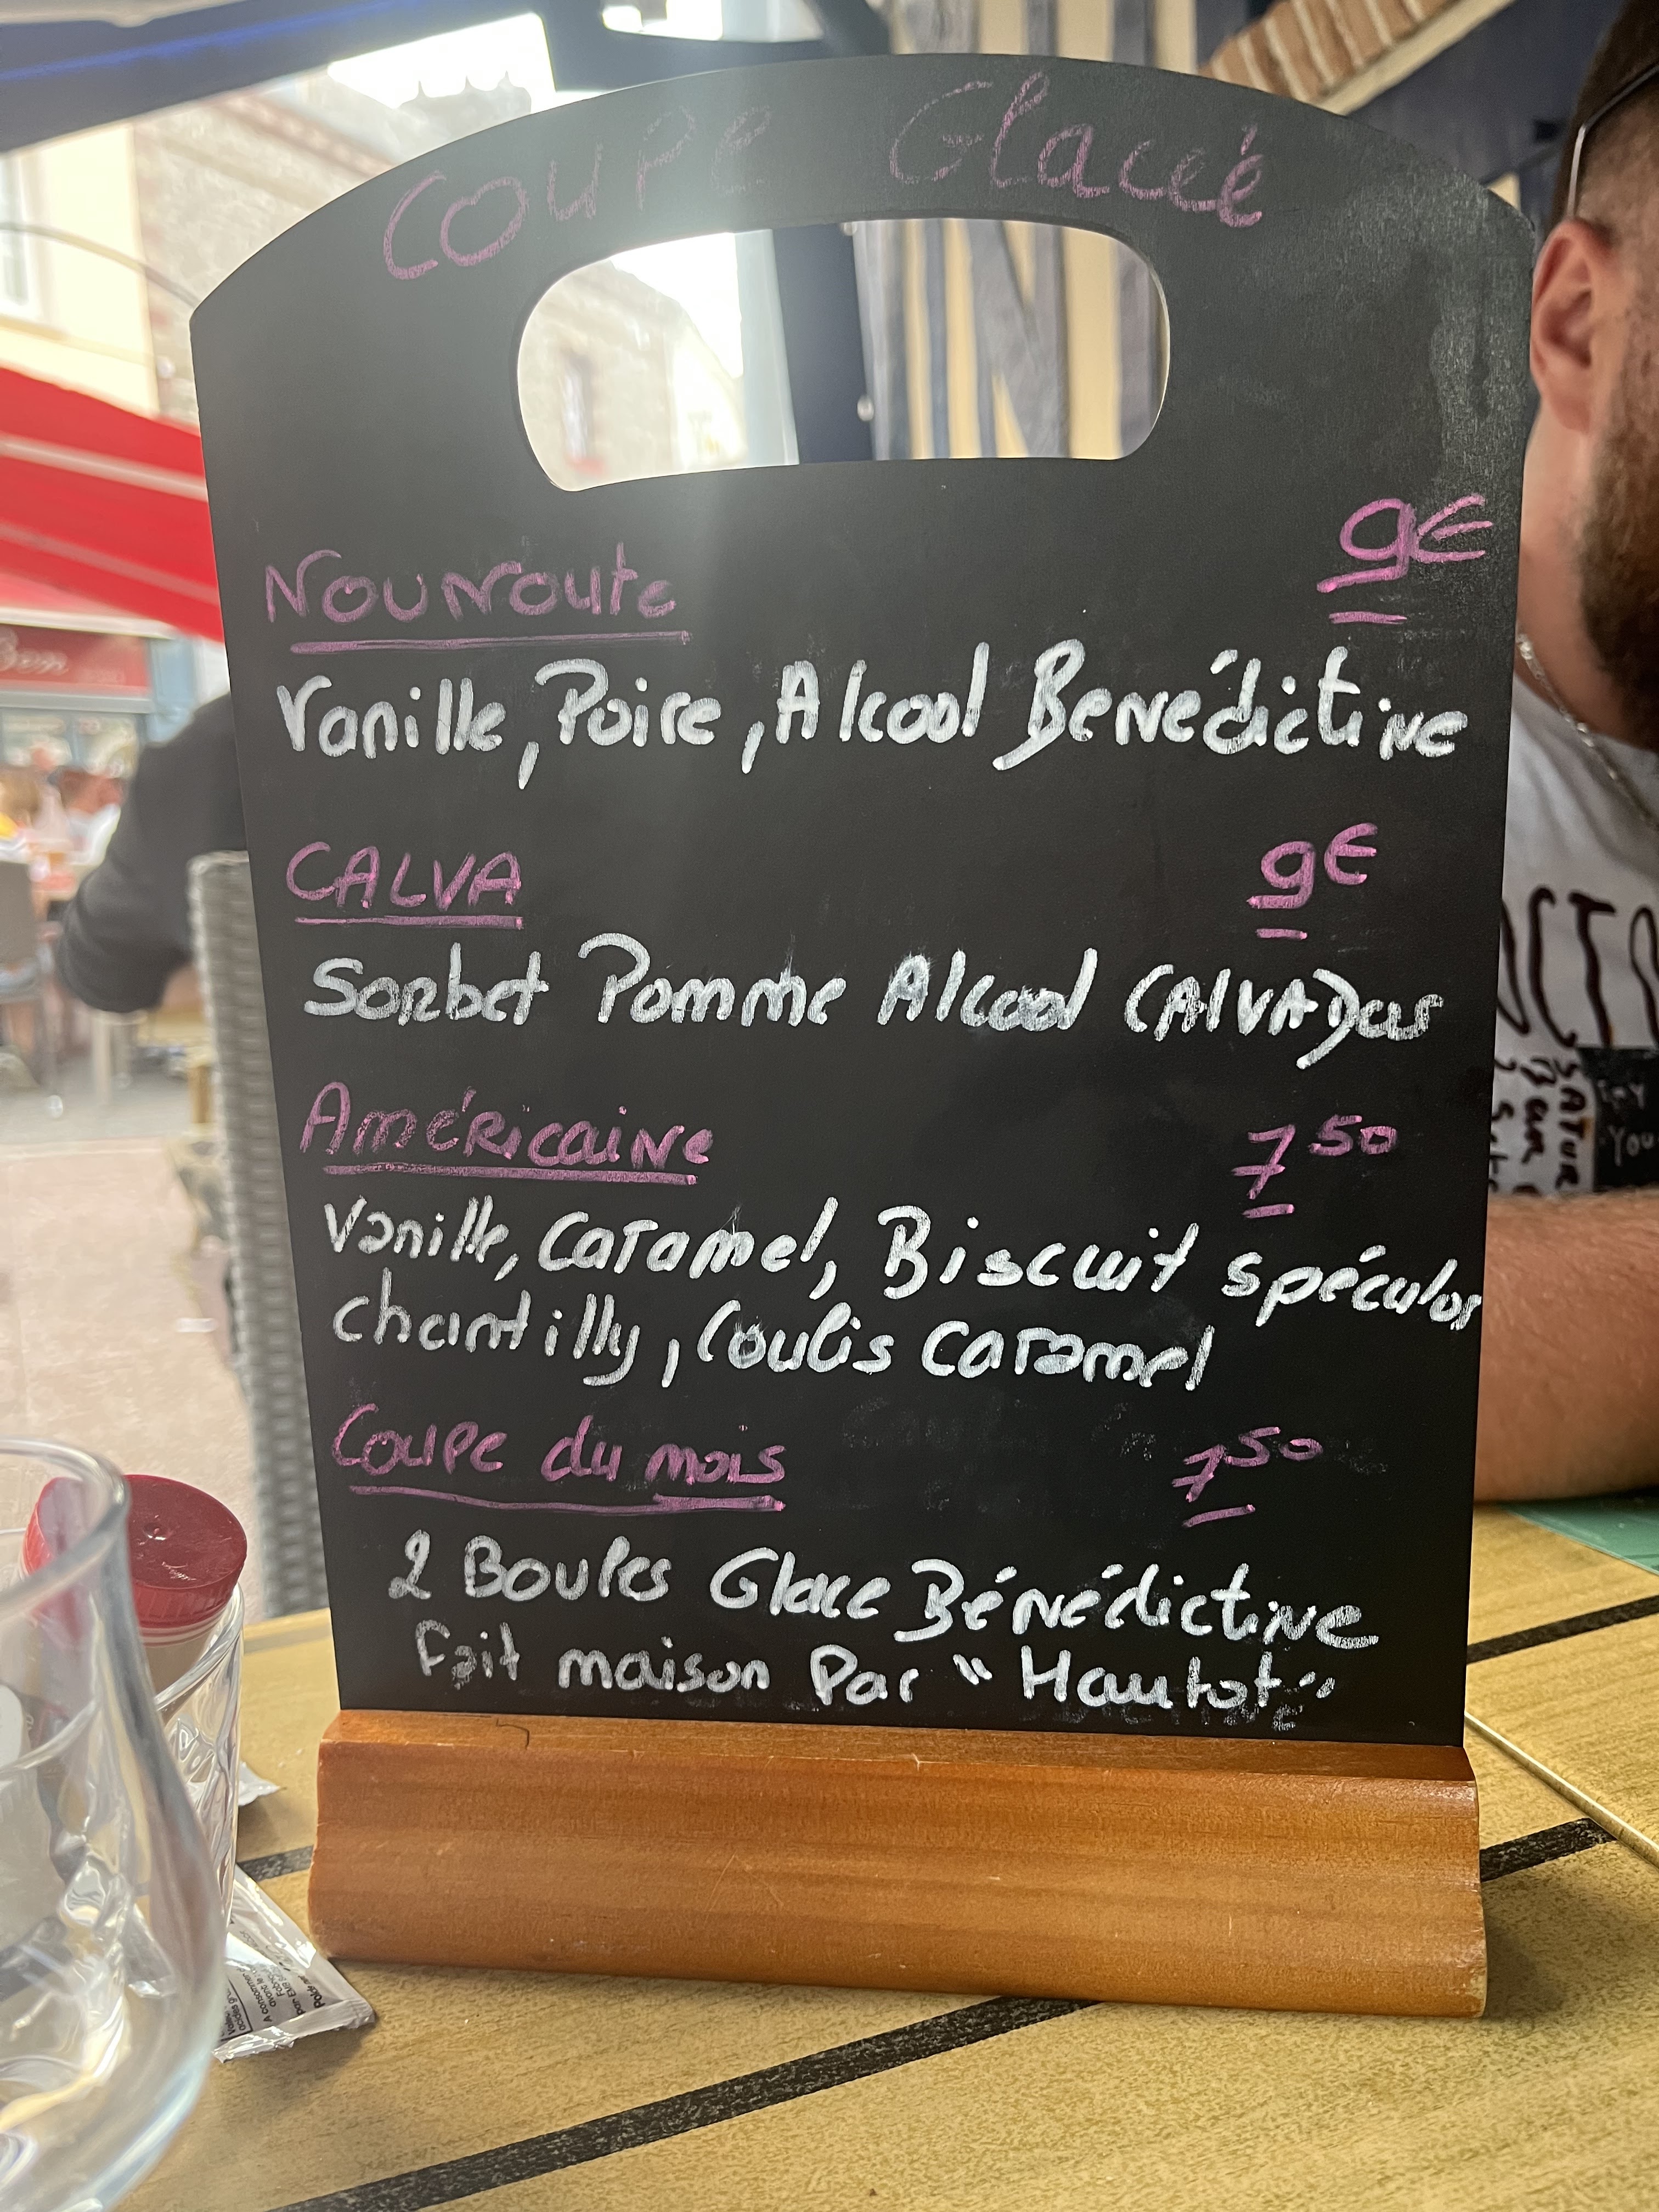 COUPE Glacéé
NOUNOUTE 9€
Vanille, Poire, Alcool Benédictine
CALVA 9€
Sorbet Pomme Alcool CAlVADos
Américaine 7 50
Vanille, Caramel, Biscuit spéculos
chantilly, Coulis Caramel
Coupe du mois 7 50
2 Boules Glace Bénédictine
Fait maison Par "Hautot"